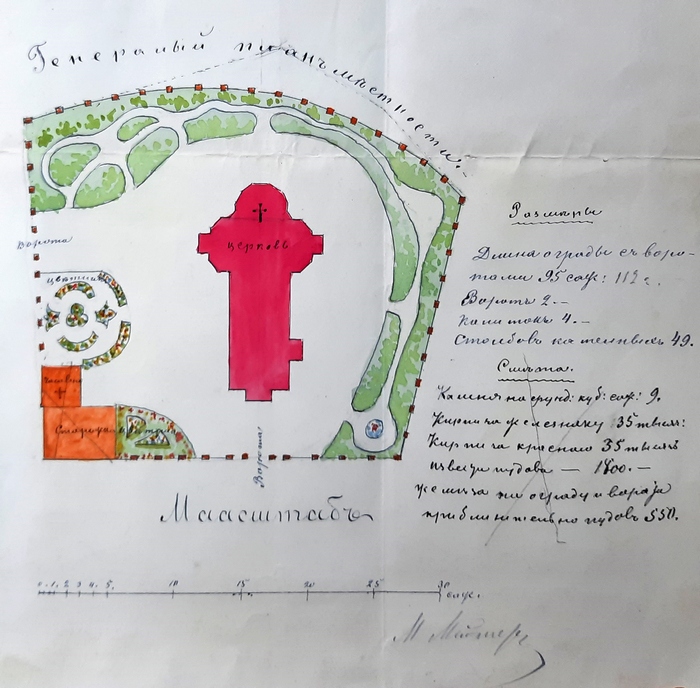 Генеральный планъ мѣстности.
Ворота
Церковь
Цвѣтникъ
Ворота
Размѣры
Длина ограды съ воро-
тами 95 саж: 112
Воротъ 2.—
Калитокъ 4.—
Столбовъ каменныхъ 49.
Смѣта.
Камня на фунд: куб: саж: 9.
Кирпича желѣзняку 35 тысяч:
Кирпича красного 35 тысячъ
извести пудовъ — 1800.—
желѣза на ограду и ворота
приблизительно пудовъ 550.
Маасштабъ
1 2 3 4 5 10 15 20 25 30 саж.